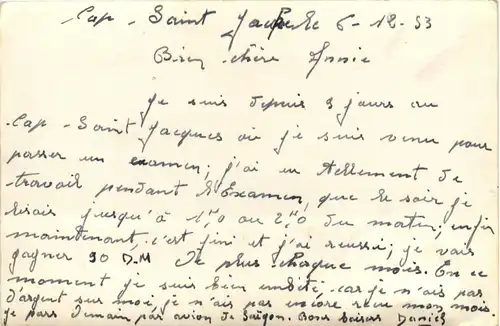 Cap - Saint Jacques le 6-12-53
Bien chère Annie
Je suis depuis 3 jours au
Cap - Saint Jacques où je suis venu pour
passer un examen; j'ai eu tellement de
travail pendant l'Examen, que le soir je
lisais jusqu'à 1H0 ou 2H0 du matin; enfin
maintenant, c'est fini et j'ai réussi; je vais
gagner 90 D.M de plus chaque mois. En ce
moment je suis bien embêté car je n'ais pas
d'argent sur moi, je n'ais pas encore reçu mon mois.
je pars demain par avion de Saïgon. Bons baisers Daniel